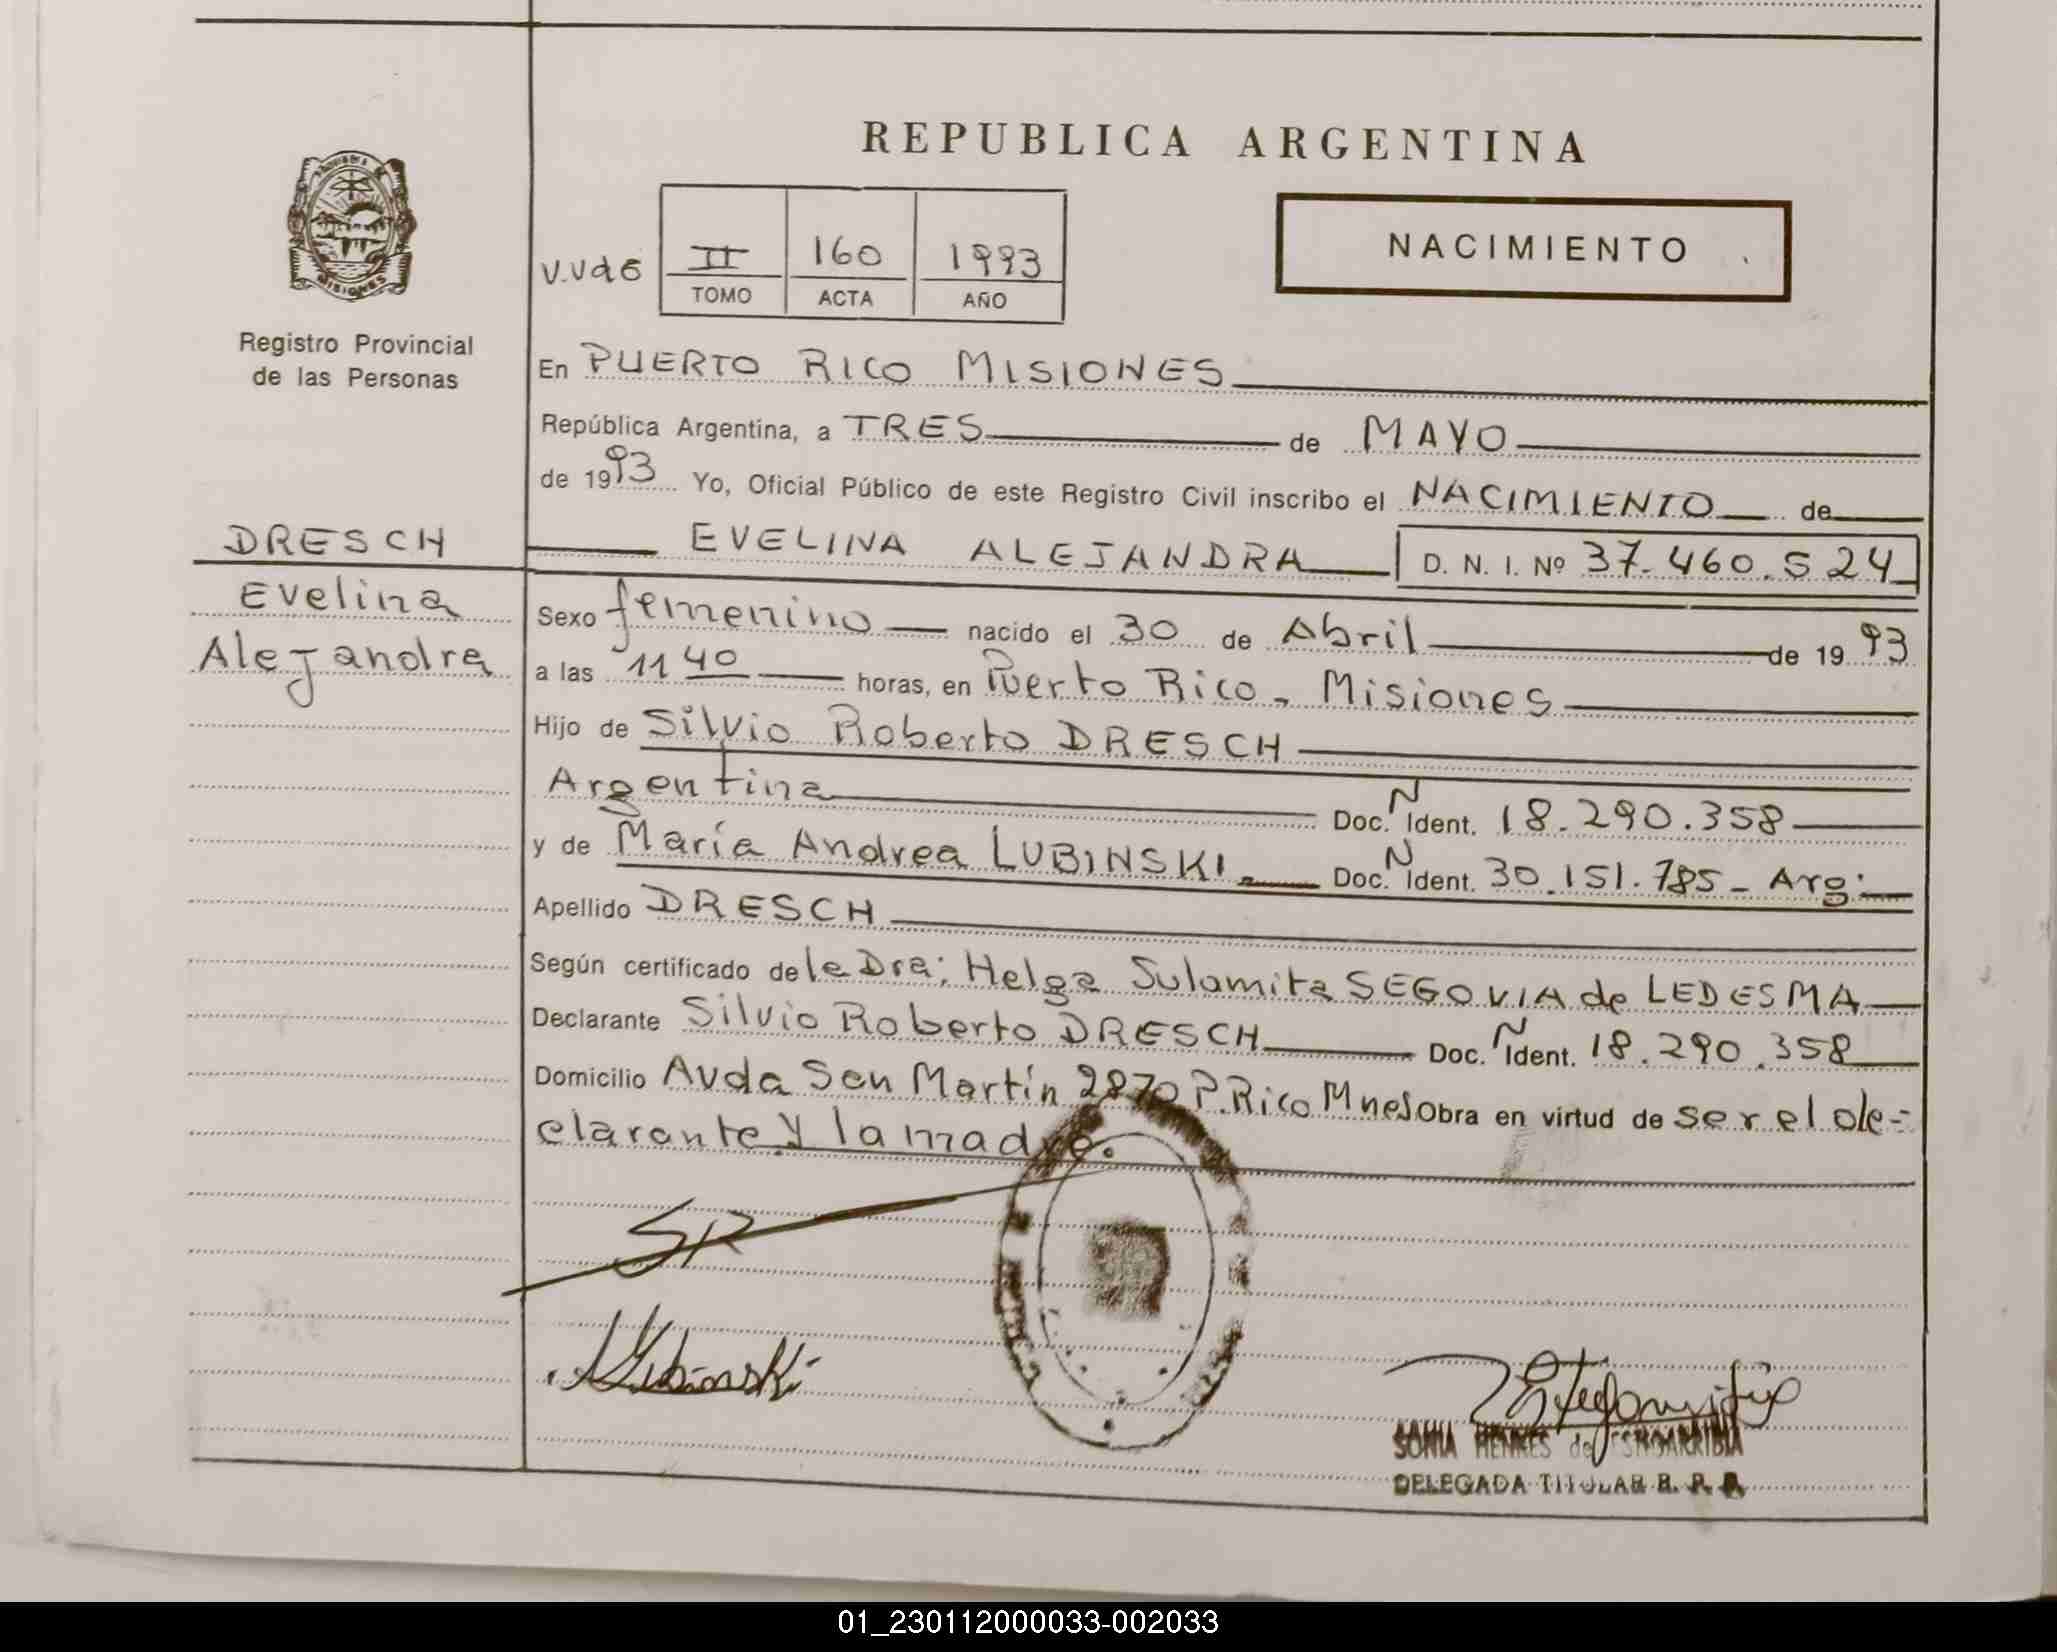 REPUBLICA ARGENTINA
PROVINCIA DE
MISIONES
Registro Provincial
de las Personas
NACIMIENTO
II 160 1993
TOMO ACTA AÑO
En PUERTO RICO MISIONES
República Argentina, a TRES de MAYO
de 1993 Yo, Oficial Público de este Registro Civil inscribo el NACIMIENTO de
DRESCH
Evelina
Alejandra
EVELINA ALEJANDRA D. N. I. Nº 37.460.524
Sexo femenino nacido el 30 de Abril de 1993
a las 11 40 horas, en Puerto Rico - Misiones
Hijo de Silvio Roberto DRESCH
Argentina Doc. N Ident. 18.290.358
y de María Andrea LUBINSKI.- Doc. N Ident. 30.151.785 - Arg:
Apellido DRESCH
Según certificado de la Dra: Helga Sulamita SEGOVIA de LEDESMA
Declarante Silvio Roberto DRESCH Doc. N Ident. 18.290.358
Domicilio Avda San Martín 2870 P.Rico Mnes Obra en virtud de ser el de-
clarante y la madre.
SR
Lubinski
SONIA HENKES de
DELEGADA TITULAR R. P. P.
01_230112000033-002033